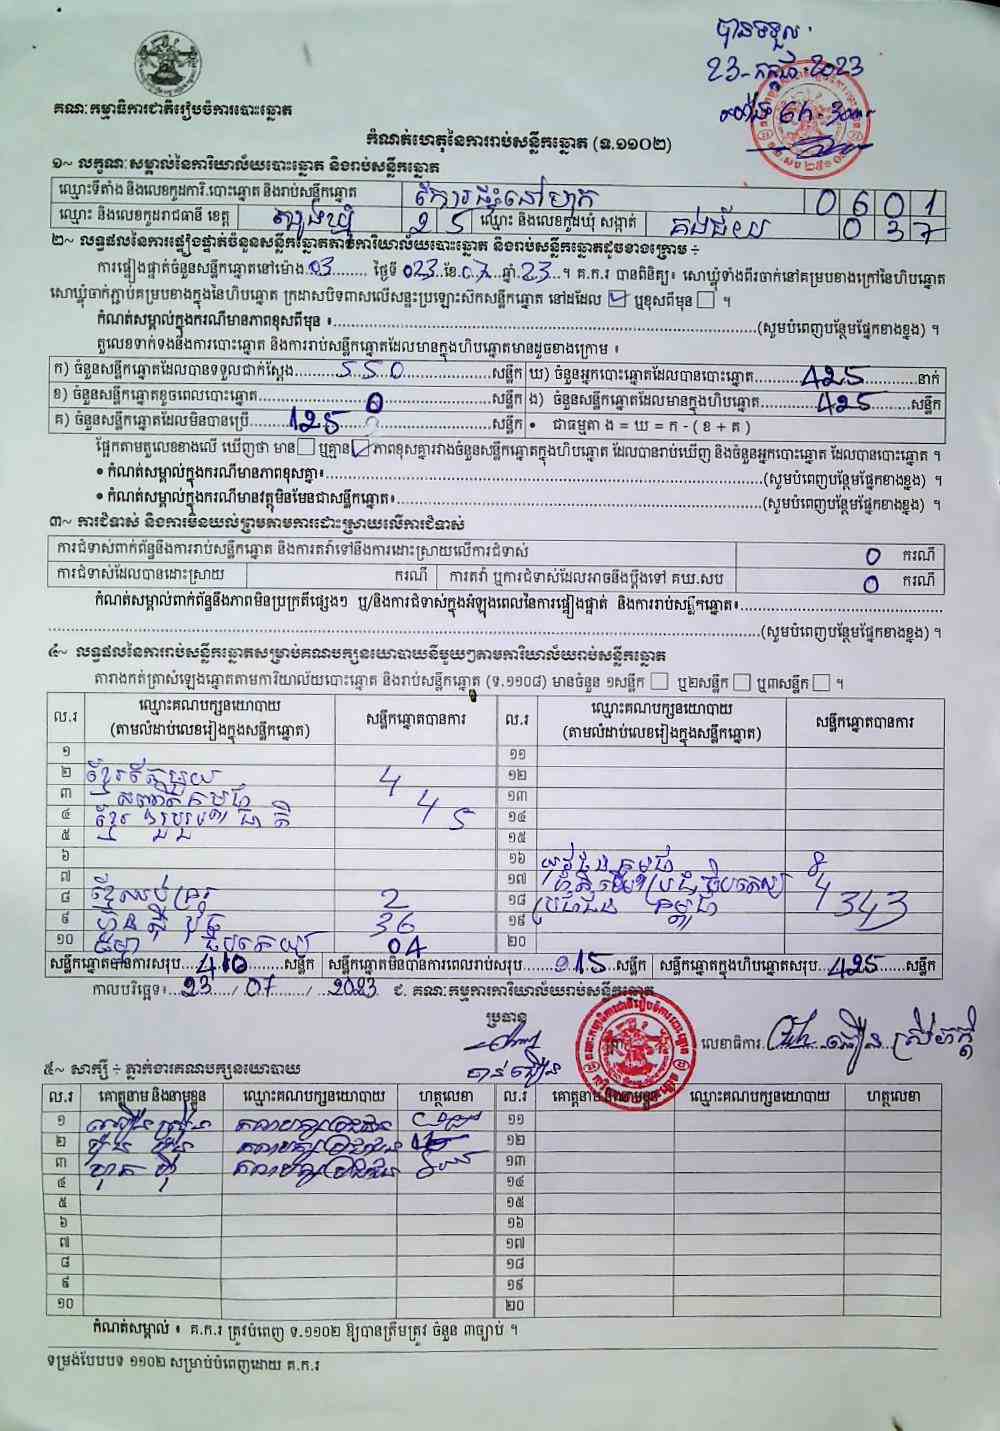 បានទទួល
23-កក្កដា-2023
6h-30
គណៈកម្មាធិការជាតិរៀបចំការបោះឆ្នោត
កំណត់ហេតុនៃការរាប់សន្លឹកឆ្នោត (ទ.១១០២)
១~ លក្ខណៈសម្គាល់នៃការិយាល័យបោះឆ្នោត និងរាប់សន្លឹកឆ្នោត
ឈ្មោះទីតាំង និងលេខកូដការិ.បោះឆ្នោត និងរាប់សន្លឹកឆ្នោត 0601
ឈ្មោះ និងលេខកូដរាជធានី ខេត្ត ត្បូងឃ្មុំ 25 ឈ្មោះ និងលេខកូដឃុំ សង្កាត់ គងជ័យ 037
២~ លទ្ធផលនៃការផ្ទៀងផ្ទាត់ចំនួនសន្លឹកឆ្នោតតាមការិយាល័យបោះឆ្នោត និងរាប់សន្លឹកឆ្នោតដូចខាងក្រោម ÷
ការផ្ទៀងផ្ទាត់ចំនួនសន្លឹកឆ្នោតនៅម៉ោង 03 ថ្ងៃទី 023 ខែ 07 ឆ្នាំ 23 ។ គ.ក.រ បានពិនិត្យ៖ សោឃ្លុំទាំងពីរចាក់នៅគម្របខាងក្រៅនៃហិបឆ្នោត
សោឃ្លុំចាក់ភ្ជាប់គម្របខាងក្នុងនៃហិបឆ្នោត ក្រដាសបិទពាសលើសន្ទះប្រឡោះស៊កសន្លឹកឆ្នោត នៅដដែល ☑ ឬខុសពីមុន ☐ ។
កំណត់សម្គាល់ក្នុងករណីមានភាពខុសពីមុន ៖ (សូមបំពេញបន្ថែមផ្នែកខាងខ្នង) ។
តួលេខទាក់ទងនឹងការបោះឆ្នោត និងការរាប់សន្លឹកឆ្នោតដែលមានក្នុងហិបឆ្នោតមានដូចខាងក្រោម ៖
ក) ចំនួនសន្លឹកឆ្នោតដែលបានទទួលជាក់ស្តែង 550 សន្លឹក ឃ) ចំនួនអ្នកបោះឆ្នោតដែលបានបោះឆ្នោត 425 នាក់
ខ) ចំនួនសន្លឹកឆ្នោតខូចពេលបោះឆ្នោត 0 សន្លឹក ង) ចំនួនសន្លឹកឆ្នោតដែលមានក្នុងហិបឆ្នោត 425 សន្លឹក
គ) ចំនួនសន្លឹកឆ្នោតដែលមិនបានប្រើ 125 សន្លឹក • ជាធម្មតា ង = ឃ = ក - ( ខ + គ )
ផ្អែកតាមតួលេខខាងលើ ឃើញថា មាន ☐ ឬគ្មាន ☑ ភាពខុសគ្នារវាងចំនួនសន្លឹកឆ្នោតក្នុងហិបឆ្នោត ដែលបានរាប់ឃើញ និងចំនួនអ្នកបោះឆ្នោត ដែលបានបោះឆ្នោត ។
• កំណត់សម្គាល់ក្នុងករណីមានភាពខុសគ្នា៖ (សូមបំពេញបន្ថែមផ្នែកខាងខ្នង) ។
• កំណត់សម្គាល់ក្នុងករណីមានវត្ថុមិនមែនជាសន្លឹកឆ្នោត៖ (សូមបំពេញបន្ថែមផ្នែកខាងខ្នង) ។
៣~ ការជំទាស់ និងការមិនយល់ព្រមតាមការដោះស្រាយលើការជំទាស់
ការជំទាស់ពាក់ព័ន្ធនឹងការរាប់សន្លឹកឆ្នោត និងការតវ៉ាទៅនឹងការដោះស្រាយលើការជំទាស់ 0 ករណី
ការជំទាស់ដែលបានដោះស្រាយ ករណី ការតវ៉ា ឬការជំទាស់ដែលអាចនឹងប្តឹងទៅ គឃ.សប 0 ករណី
កំណត់សម្គាល់ពាក់ព័ន្ធនឹងភាពមិនប្រក្រតីផ្សេងៗ ឬ/និងការជំទាស់ក្នុងអំឡុងពេលនៃការផ្ទៀងផ្ទាត់ និងការរាប់សន្លឹកឆ្នោត៖
(សូមបំពេញបន្ថែមផ្នែកខាងខ្នង) ។
៤~ លទ្ធផលនៃការរាប់សន្លឹកឆ្នោតសម្រាប់គណបក្សនយោបាយនីមួយៗតាមការិយាល័យរាប់សន្លឹកឆ្នោត
តារាងកត់ត្រាសំឡេងឆ្នោតតាមការិយាល័យបោះឆ្នោត និងរាប់សន្លឹកឆ្នោត (ទ.១១០៨) មានចំនួន ១សន្លឹក ☐ ឬ២សន្លឹក ☐ ឬ៣សន្លឹក ☐ ។
ល.រ ឈ្មោះគណបក្សនយោបាយ (តាមលំដាប់លេខរៀងក្នុងសន្លឹកឆ្នោត) សន្លឹកឆ្នោតបានការ ល.រ ឈ្មោះគណបក្សនយោបាយ (តាមលំដាប់លេខរៀងក្នុងសន្លឹកឆ្នោត) សន្លឹកឆ្នោតបានការ
១ ១១
២ 4 ១២
៣ កម្ពុជា 4 ១៣
៤ ខ្មែរ ជាតិ 5 ១៤
៥ ១៥
៦ ១៦ កម្ពុជា 8
៧ ១៧ 4
៨ 2 ១៨ ប្រជាជន កម្ពុជា 343
៩ ហ៊្វុនស៊ិនប៉ិច 36 ១៩
១០ 04 ២០
សន្លឹកឆ្នោតបានការសរុប 410 សន្លឹក សន្លឹកឆ្នោតមិនបានការពេលរាប់សរុប 015 សន្លឹក សន្លឹកឆ្នោតក្នុងហិបឆ្នោតសរុប 425 សន្លឹក
កាលបរិច្ឆេទ៖ 23 / 07 / 2023 ជ. គណៈកម្មការការិយាល័យរាប់សន្លឹកឆ្នោត
ប្រធាន
លេខាធិការ
៥~ សាក្សី ÷ ភ្នាក់ងារគណបក្សនយោបាយ
ល.រ គោត្តនាម និងនាមខ្លួន ឈ្មោះគណបក្សនយោបាយ ហត្ថលេខា ល.រ គោត្តនាម និងនាមខ្លួន ឈ្មោះគណបក្សនយោបាយ ហត្ថលេខា
១ គណបក្សប្រជាជន ១១
២ គណបក្សប្រជាជន ១២
៣ គណបក្សប្រជាជន ១៣
៤ ១៤
៥ ១៥
៦ ១៦
៧ ១៧
៨ ១៨
៩ ១៩
១០ ២០
កំណត់សម្គាល់ ៖ គ.ក.រ ត្រូវបំពេញ ទ.១១០២ ឱ្យបានត្រឹមត្រូវ ចំនួន ៣ច្បាប់ ។
ទម្រង់បែបបទ ១១០២ សម្រាប់បំពេញដោយ គ.ក.រ